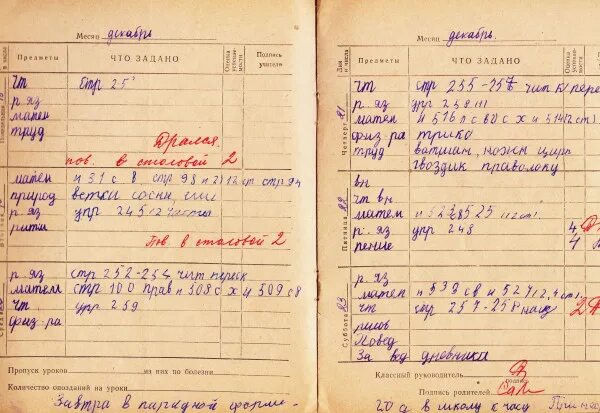 Месяц декабрь
Предметы ЧТО ЗАДАНО Оценка успеваемости Подпись учителя
Понедельник
чт стр 25
р. яз
матем
труд
Дрался.
пов. в столовой 2
матем № 31 с в стр 98 и 2) 12 ст стр 94
природ ветки сосны, ели
р. яз упр 245 (2 части)
ритм
Пов. в столовой 2
Среда
р. яз стр 252-254 чит переск
матем стр 100 прав № 508 с х и 509 с в
чт упр 259
физ-ра
Пропуск уроков из них по болезни
Количество опозданий на уроки
Завтра в парадной форме
Месяц декабрь
Дни и числа Предметы ЧТО ЗАДАНО Оценка успеваемости
Четверг 21
чт стр 255-257 чит к/ пере
р. яз упр 238
матем № 516 п с х и 514 (2 ст)
физ-ра трико
труд ватман, ножн
гвоздик проволоку
Пятница 22
вн
чт вн
матем 525 (2 ст)
р. яз упр 248 4
пение 4
Суббота 23
р. яз
матем № 539 с в и 527 (2, 4 ст)
чт стр 257-258 2
рисов
Повед
За вд дневника
Классный руководитель
подпись
Подпись родителей
в школу к часу